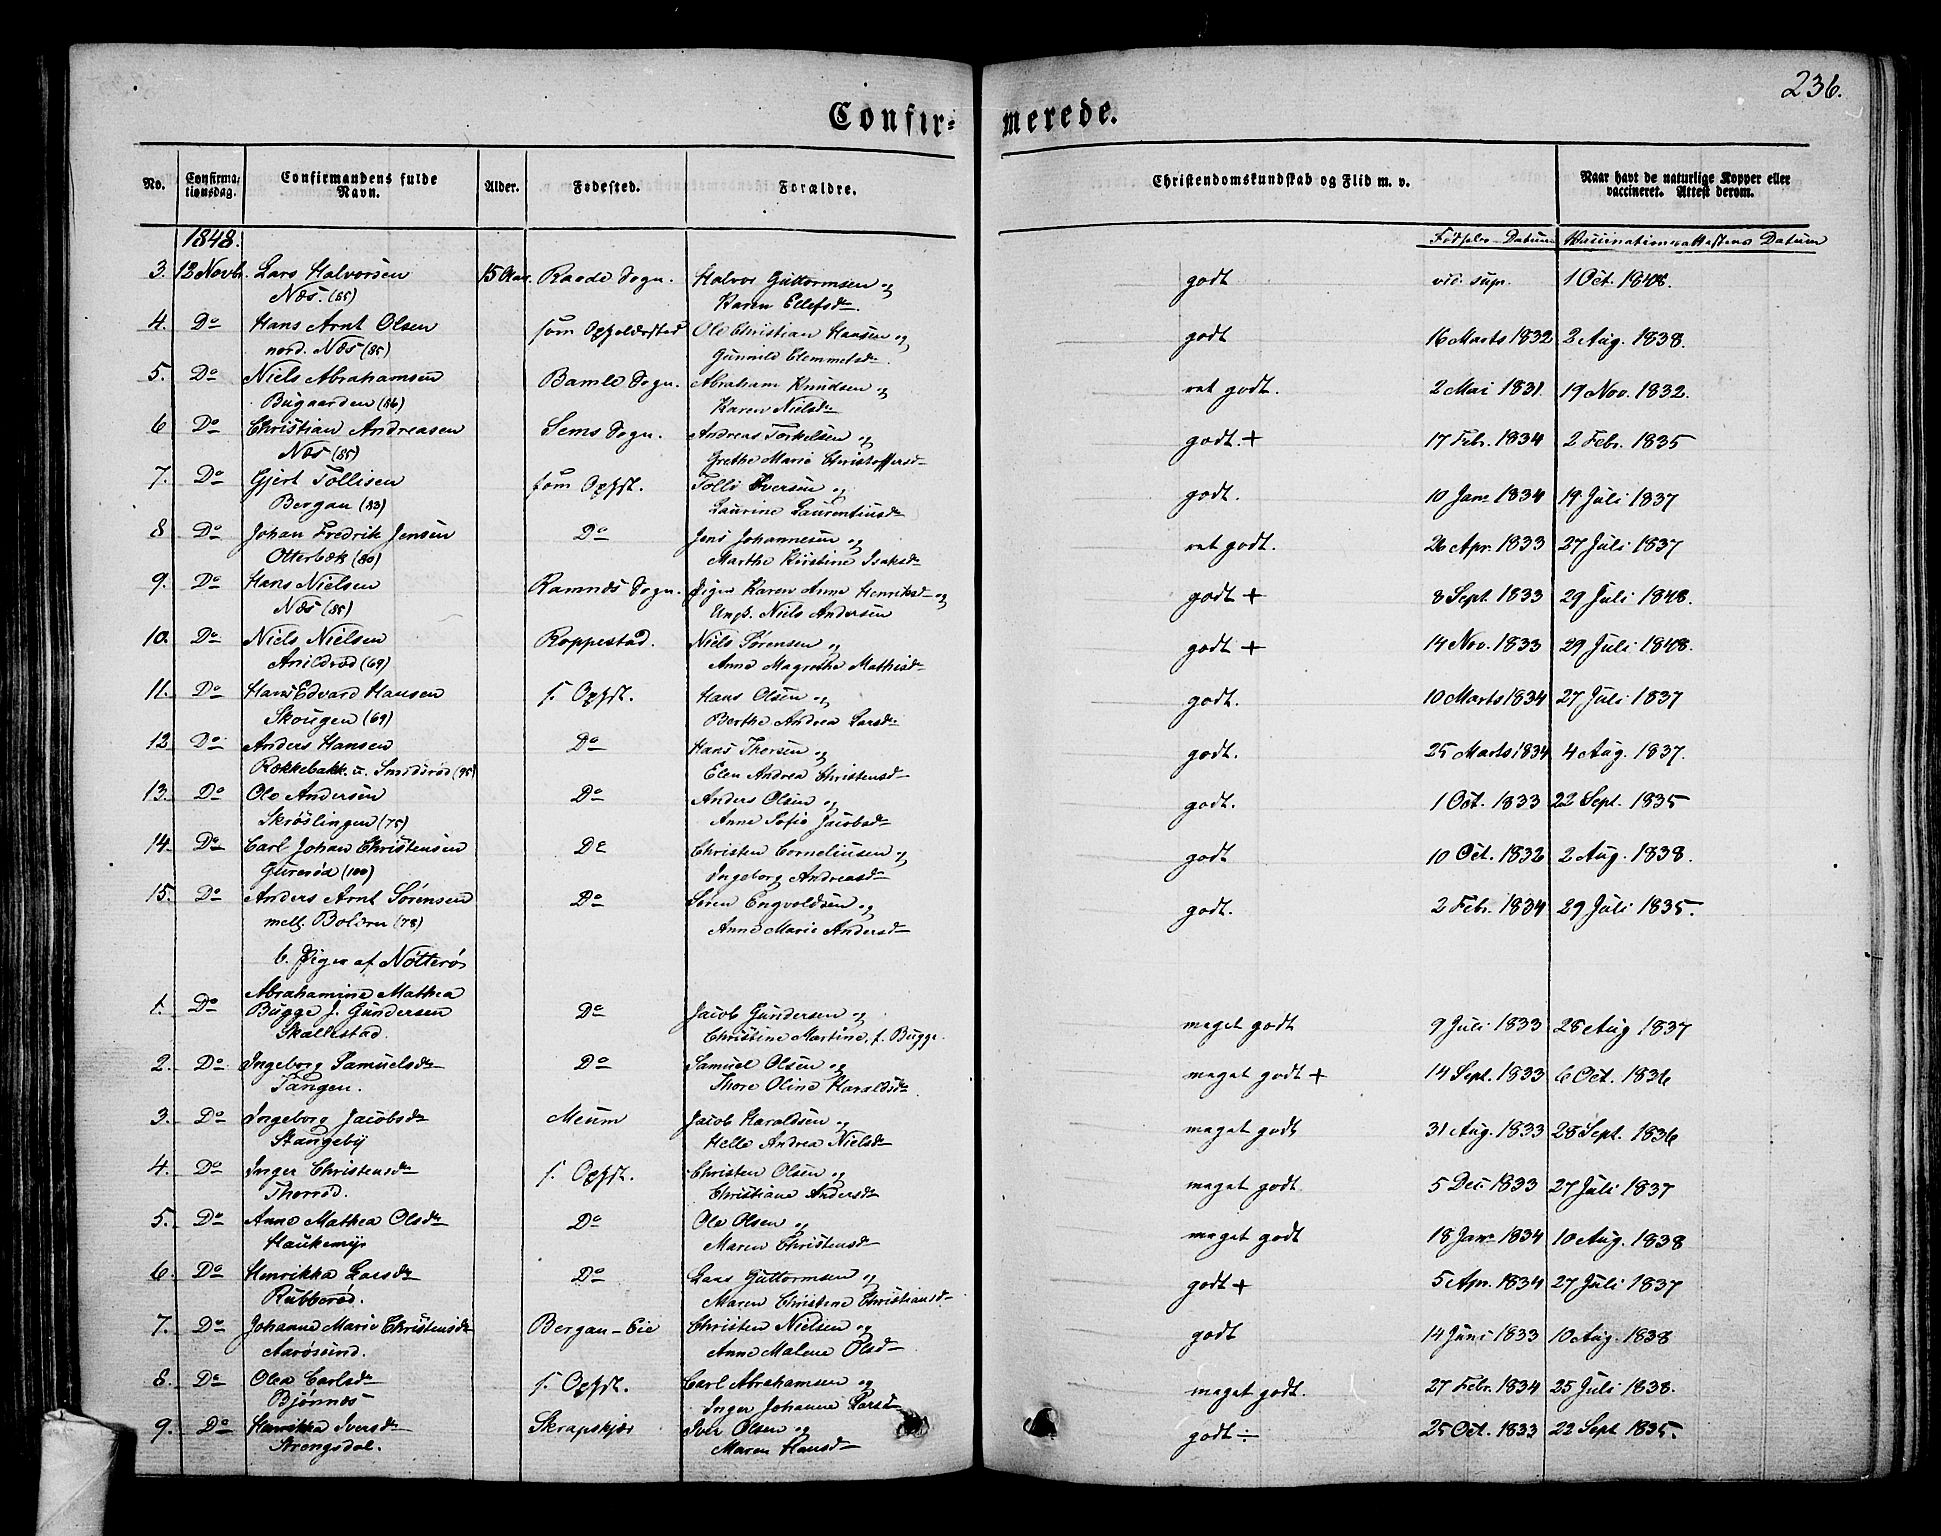 236.
Confirmerede.
No. Confirmationsdag. Confirmandens fulde Navn. Alder. Fødested. Forældre. Christendomskundskab og Flid m. v. Naar havt de naturlige Kopper eller vaccineret. Attest derom.
1848. Fødsels-Datum Vaccinationsattestens Datum
3. 12 Novb. Lars Halvorsen 15 Aar. Raade Sogn. Halvor Guttormsen og godt vid. sup. 1 Oct. 1848.
Næs (85) Karen Ellefsdr
4. Do Hans Arnt Olsen som Opholdssted Ole Christian Hansen og godt 16 Marts 1832 2 Aug. 1838.
nord. Næs (85) Gunnild Clemmetsdr
5. Do Niels Abrahamsen Bamle Sogn. Abraham Knudsen og ret godt. 2 Mai 1831. 19 Nov. 1832.
Bugaarden (86) Karen Nielsdr
6 Do Christian Andreasen Sems Sogn. Andreas Torkelsen og godt + 17 Febr. 1834 2 Febr. 1835
Næs (85) Grethe Marie Christoffersdr
7. Do Gjert Tollisen som Ophst. Tolle Iversen og godt. 10 Janr 1834 19 Juli 1837
Bergan (83) Laurine Laurentiusdr
8 Do Johan Fredrik Jensen Do Jens Johannesen og ret godt. 26 Apr. 1833 27 Juli 1837
Otterbæk (80) Marthe Kirstine Isaksdr
9. Do Hans Nielsen Ramnæs Sogn. Pigen Karen Anne Henriksdr og godt + 8 Sept. 1833 29 Juli 1848.
Næs (85) Ungk. Niels Andersen
10. Do Niels Nielsen Roppestad. Niels Sørensen og godt + 14 Nov. 1833 29 Juli 1848.
Arildrød (69) Anne Magrethe Mathisdr
11. Do Hans Edvard Hansen s. Ophst. Hans Olsen og godt. 10 Marts 1834 27 Juli 1837
Skougen (69) Berthe Andrea Larsdr
12 Do Anders Hansen Do Hans Thorsen og godt. 25 Marts 1834 4 Aug. 1837.
Rækkebakk. u. Smidsrød (95) Elen Andrea Christensdr
13. Do Ole Andersen Do Anders Olsen og godt. 1 Oct. 1833 22 Sept. 1835
Skrøslingen (75) Anne Sofie Jacobsdr
14. Do Carl Johan Christensen Do Christen Corneliusen og godt 10 Oct. 1832 2 Aug. 1838.
Gurerød (100) Ingeborg Andreasdr
15. Do Anders Arnt Sørensen Do Søren Engvoldsen og godt. 2 Febr. 1834 29 Juli 1835.
mell. Bolæren (78) Anne Marie Andersdr
b. Piger af Nøtterø
Abrahamine Mathea
1. Do Bugge J. Gundersen Do Jacob Gundersen og meget godt 9 Juli 1833 28 Aug 1837
Skallestad. Christine Martine, f. Bugge.
2. Do Ingeborg Samuelsdr Do Samuel Olsen og meget godt + 14 Sept. 1833 6 Oct. 1836
Tangen. Thore Oline Haraldsdr
3. Do Ingeborg Jacobsdr Meum Jacob Haraldsen og meget godt 31 Aug. 1833 28 Sept. 1836
Stangeby Helle Andrea Nielsdr
4. Do Inger Christensdr s. Ophst. Christen Olsen og meget godt 5 Dec. 1833 27 Juli 1837
Thorrød. Christiane Andersdr
5. Do Anne Mathea Olsdr Do Ole Olsen og meget godt 18 Janr 1834 10 Aug. 1838
Haukemyr Maren Christensdr
6. Do Henrikka Larsdr Do Lars Guttormsen og godt + 5 Apr. 1834 27 Juli 1837
Rubberød. Maren Christine Christiansdr
7. Do Johanne Marie Christensdr Bergan-Eie Christen Nielsen og godt 14 Juni 1833 10 Aug. 1838
Aarøsund. Anne Malene Olsdr
8. Do Olea Carlsdr s. Ophst. Carl Abrahamsen og meget godt. 27 Febr. 1834 25 Juli 1838.
Bjønnes Inger Johanne Larsd
9. Do Henrikka Iversdr Skrapskjær Iver Olsen og godt ÷ 25 Oct. 1833 22 Sept 1835.
Strengsdal. Maren Hansdr